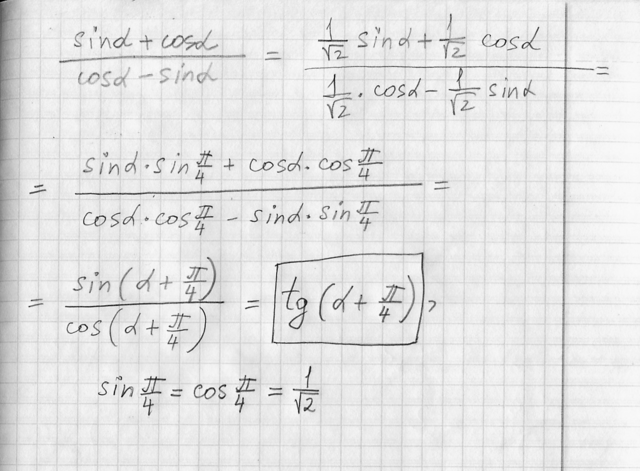 (sinα + cosα)/(cosα - sinα) = (1/√2 sinα + 1/√2 cosα)/(1/√2 · cosα - 1/√2 sinα) =
= (sinα · sin π/4 + cosα · cos π/4)/(cosα · cos π/4 - sinα · sin π/4) =
= sin(α + π/4)/cos(α + π/4) = tg(α + π/4),
sin π/4 = cos π/4 = 1/√2